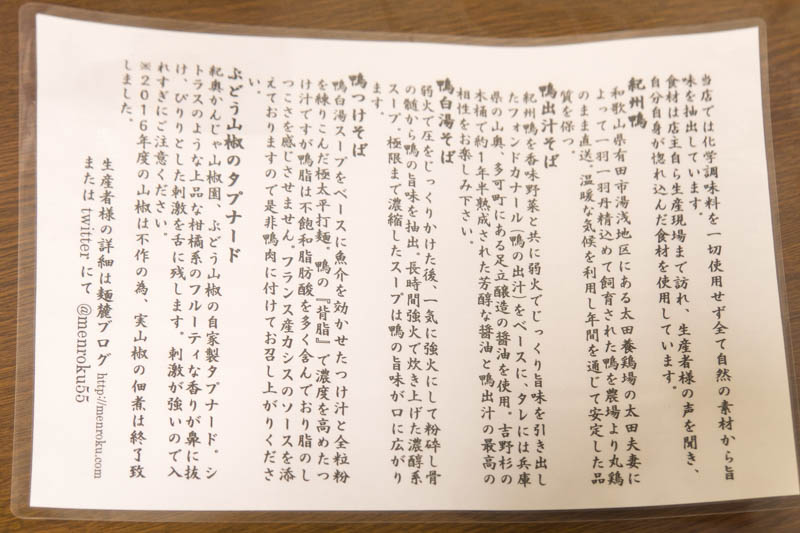 当店では化学調味料を一切使用せず全て自然の素材から旨
味を抽出しています。
食材は店主自ら生産現場まで訪れ、生産者様の声を聞き、
自分自身が惚れ込んだ食材を使用しています。
紀州鴨
和歌山県有田市湯浅地区にある太田養鶏場の太田夫妻に
よって一羽一羽丹精込めて飼育された鴨を農場より丸鶏
のまま直送。温暖な気候を利用し年間を通じて安定した品
質を保つ。
鴨出汁そば
紀州鴨を香味野菜と共に弱火でじっくり旨味を引き出し
たフォンドカナール(鴨の出汁)をベースに、タレには兵庫
県の山奥、多可町にある足立醸造の醤油を使用。吉野杉の
木桶で約1年半熟成された芳醇な醤油と鴨出汁の最高の
相性をお楽しみ下さい。
鴨白湯そば
弱火で圧をじっくりかけた後、一気に強火にして粉砕し骨
の髄から鴨の旨味を抽出。長時間強火で炊き上げた濃醇系
スープ。極限まで濃縮したスープは鴨の旨味が口に広がり
ます。
鴨つけそば
鴨白湯スープをベースに魚介を効かせたつけ汁と全粒粉
を練りこんだ極太平打麺。鴨の『背脂』で濃度を高めたつ
け汁ですが鴨脂は不飽和脂肪酸を多く含んでおり脂のし
つこさを感じさせません。フランス産カシスのソースを添
えておりますので是非鴨肉に付けてお召し上がりくださ
い。
ぶどう山椒のタプナード
紀奥かんじゃ山椒園、ぶどう山椒の自家製タプナード。シ
トラスのような上品な柑橘系のフルーティな香りが鼻に抜
け、ぴりりとした刺激を舌に残します。刺激が強いので入
れすぎにご注意ください。
※2016年度の山椒は不作の為、実山椒の佃煮は終了致
しました。
生産者様の詳細は麺麓ブログ http://menroku.com
または twitter にて @menroku55